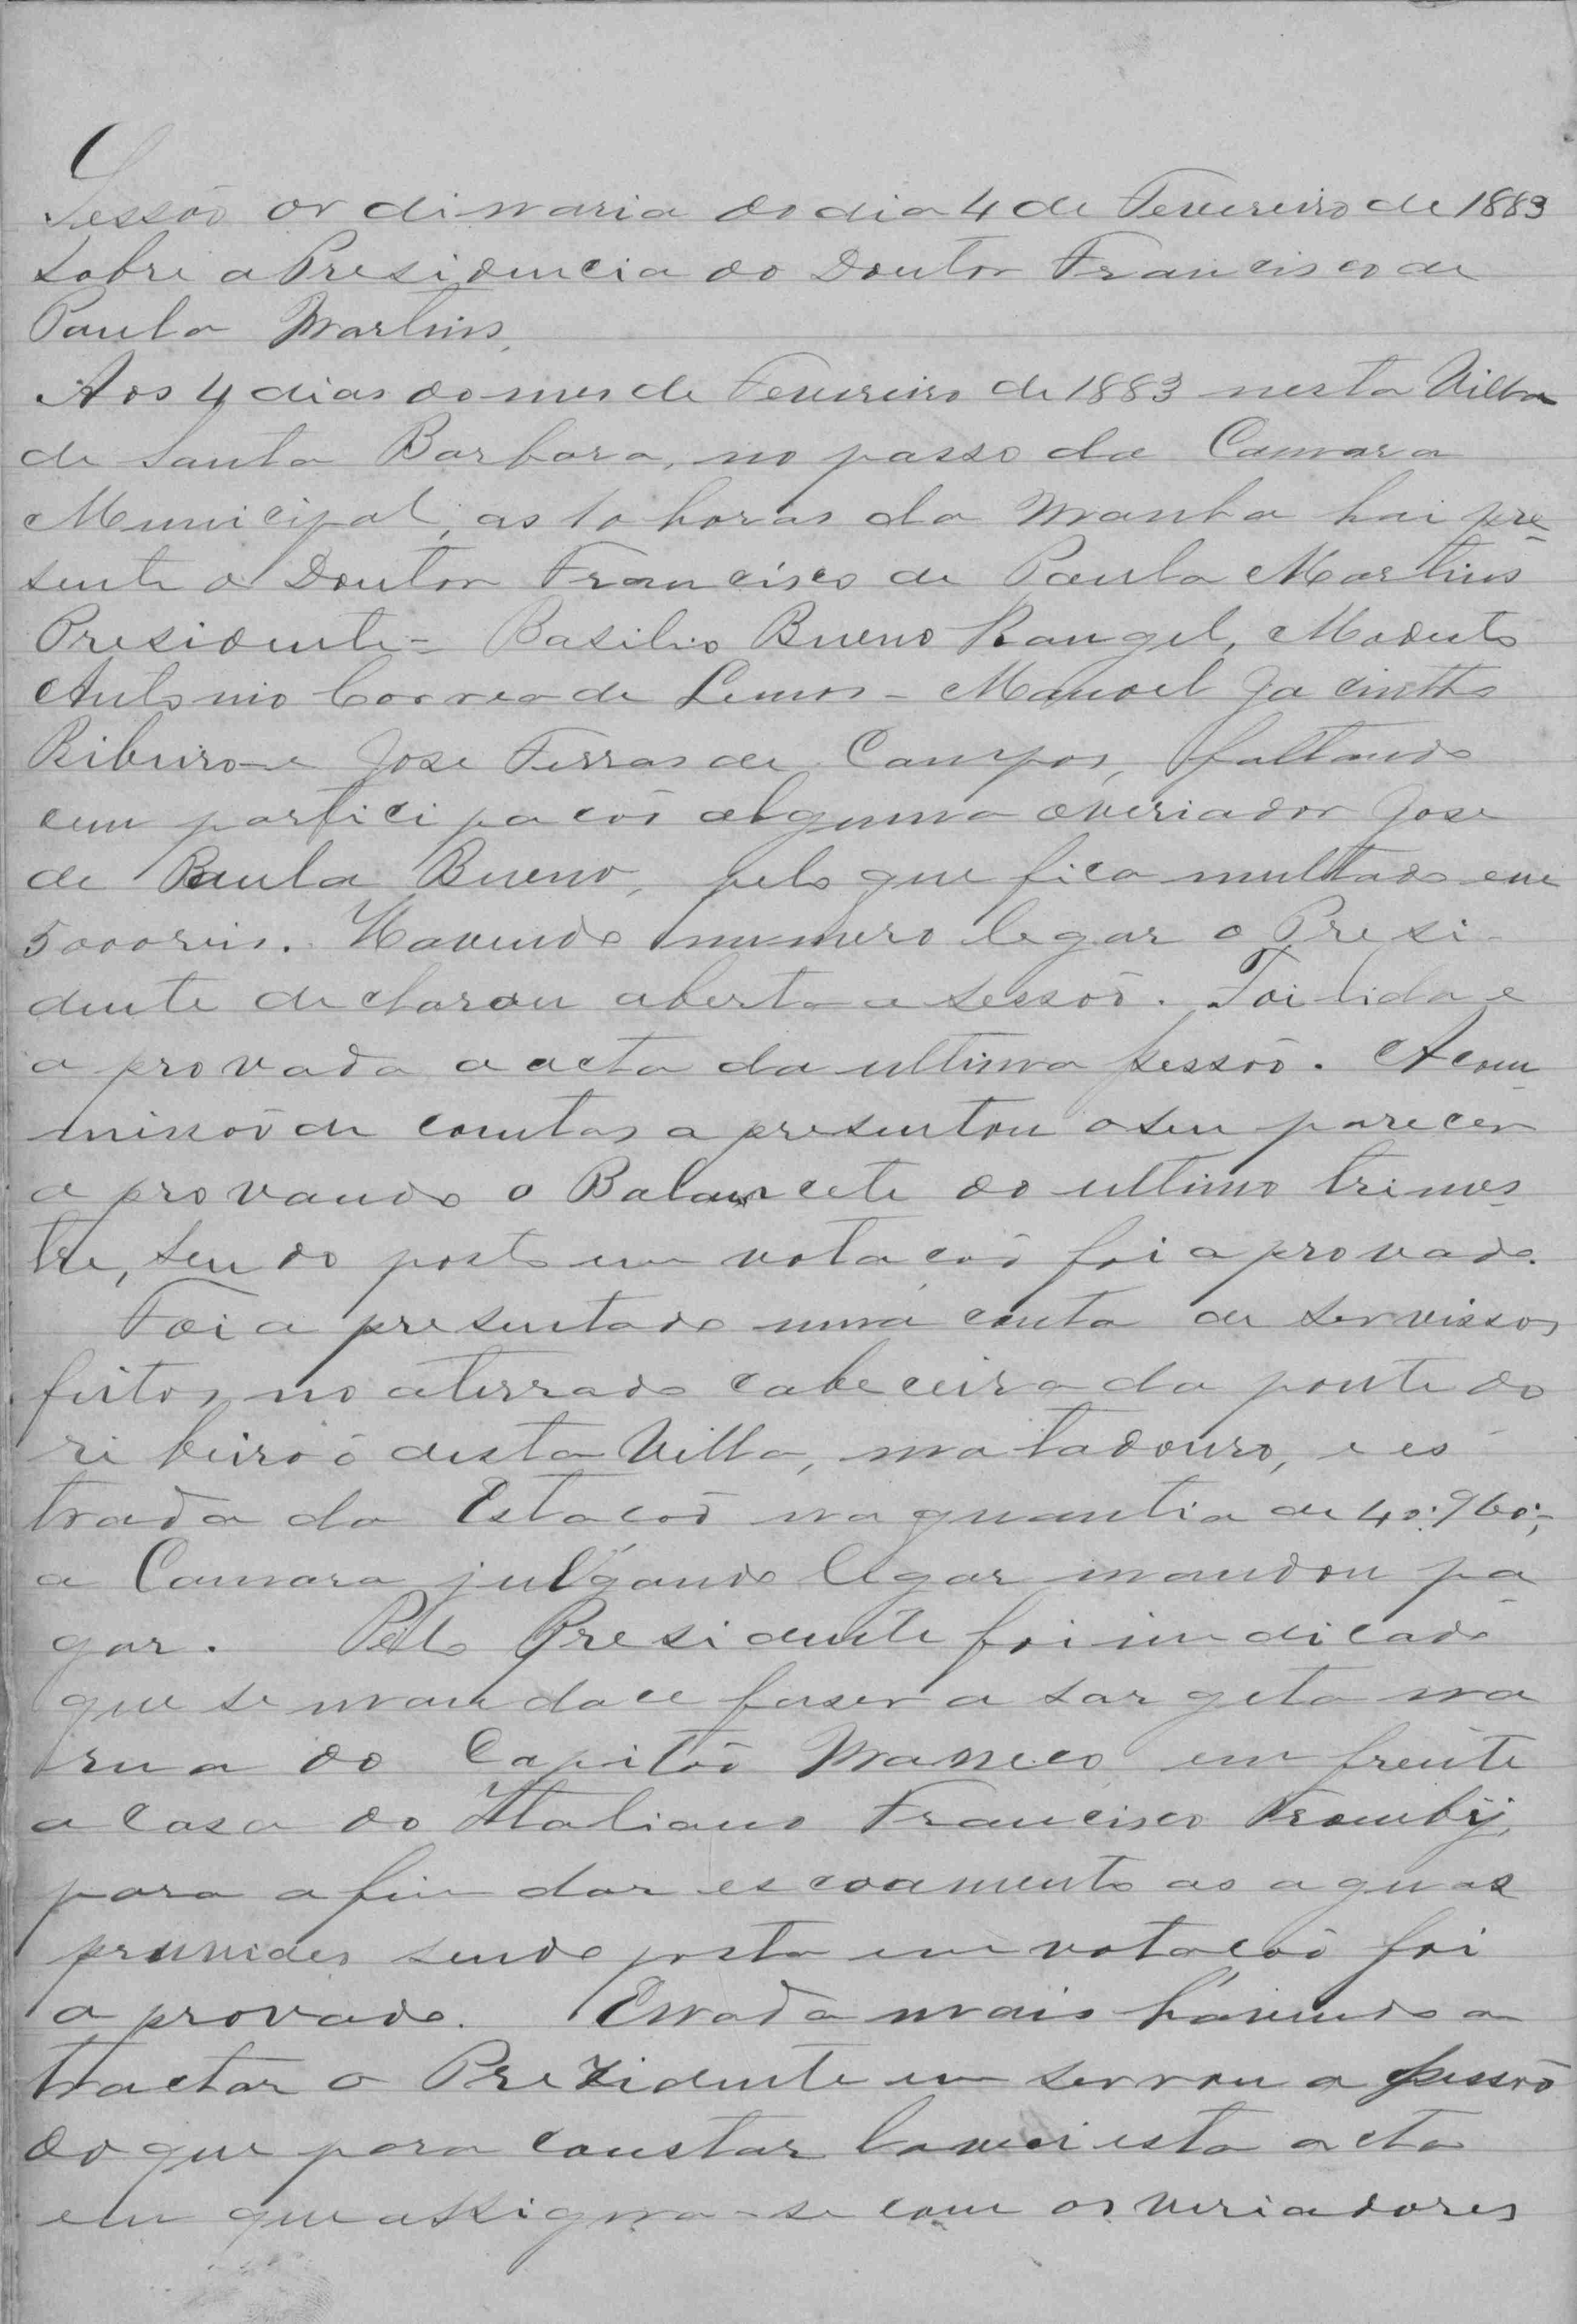 Sessão ordinaria do dia 4 de Fevereiro de 1883
sobre a Presidencia do Doutor Francisco de
Paula Martins.
Aos 4 dias do mes de Fevereiro de 1883 nesta Villa
de Santa Barbara, no passo da Camara
Municipal, as 10 horas da manha hai pre
sente o Doutor Francisco de Paula Martins
Presidente - Basilio Bueno Rangel, Modesto
Antonio Correa de Lemos - Manoel Jacintho
Ribeiro e Jose Ferras de Campos, faltando
cem participacão alguma o veriador Jose
de Paula Bueno, pelo que fica multado em
5000 reis. Havendo numero legar o Presi-
dente declarou aberta a sessão. Foi lida e
aprovada a acta da ultima sessão. A com
missão de contas apresentou o seu parecer
aprovando o Balancete do ultimo trimes
tre, sendo posto em votacão foi aprovado.
Foi apresentado uma conta de servissos
feitos no aterrado cabeceira da ponte do
ribeirão desta Villa, matadouro, e es
trada da Estacão na quantia de 40:960;
a Camara julgando legar mandou pa
gar. Pelo Presidente foi indicado
que se mandace faser a sargeta na
rua do Capitão Maneco em frente
a casa do Italiano Francisco Fromby,
para a fim dar escoamento as aguas
pruvides sendo posta em votacão foi
aprovado. E nada mais havendo a
tractar o Prezidente enserrou a sessão
do que para constar lavrei esta acta
em que assigna-se com os veriadores